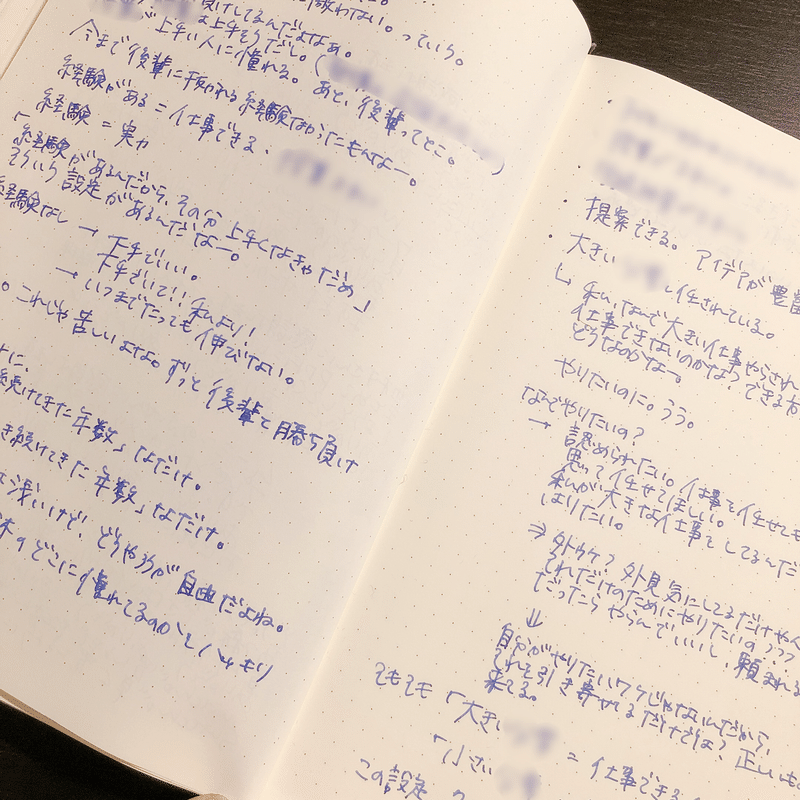 に敵わない。っていう。
負けしてるんだよなぁ。
は上手そうだし。(
が上手い人に憧れる。あと、後輩ってとこ。)
今まで後輩に抜かれる経験なかったもんなー。
経験がある=仕事できる、
経験=実力
「経験があるんだから、その分上手くなきゃだめ」
そういう設定があるんだなー。
経験なし → 下手でいい。
下手でいて!! 私より!
→ いつまでたっても伸びない。
。これじゃ苦しいよな。ずっと後輩と勝ち負け
に、
続けてきた年数」なだけ。
き続けてきた年数」なだけ。
は浅いけど、どうやろうが自由だよね。
のどこに憧れてるのかとハッキリ
提案できる。アイデアが豊富
大きい
任されている。
↳ 私、なんで大きい仕事やらされ
仕事できないのかな? できる方
どうなのかなー。
やりたいのに。うう。
なんでやりたいの?
→ 認められたい。仕事を任せても
思って任せてほしい。
私が大きな仕事をしてるんだ
はりたい。
⇒ 外ウケ? 外見気にしてるだけやん
それだけのためにやりたいの???
だったらやらんでいいし、頼まれる
⇓
自分がやりたいワケじゃないんだから、
それを引き寄せてるだけでしょ? 正しいもの
来てる。
そもそも「大きい
=仕事できる
「小さい
この設定